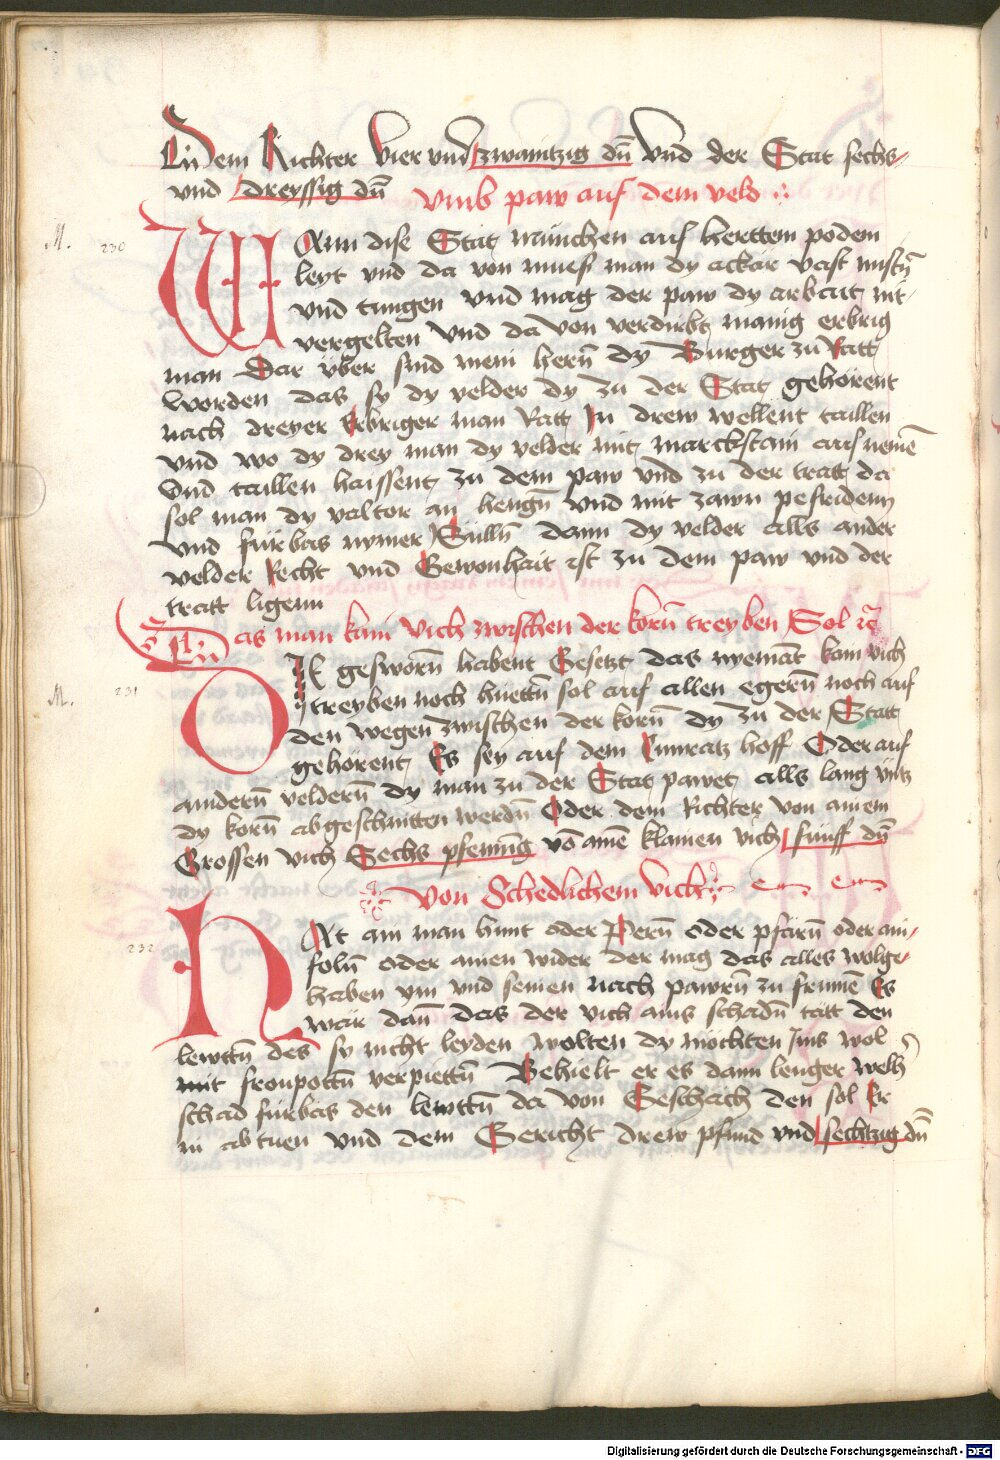 Dem Richter vier und zwaintzig dn̄ Vnd der Stat sechs-
und dreyssig dn̄ Vmb paw auf dem veld
M. 230 WAnn dise Stat münchen auf herttem podem
leyt vnd da von mues man dy äckär vast mistn̄
vnd tungen vnd mag der paw dy arbait nit
vergelten Vnd da von verdirbt manig erbrig
man Dar über sind mein hern̄ dy Burger zu Ratt
worden das sy dy velder dy zu der Stat gehörent
nach dreyer Erbriger man Ratt In drew wellent taillen
vnd wo dy drey man dy velder mit marckstain aus nemē
Vnd taillen haissent zu dem paw vnd zu der tratt da
sol man dy valtor an hengn̄ vnd mit zawn pefriden
vnd fürbas nymer Sülln̄ dann dy velder alls ander
velder Recht vnd Gewonhait ist zu dem paw vnd der
tratt ligenn
Das man kain vich zwischen der korn̄ treyben Sol
M. 231 DIE gesworn̄ habent Gesetzt das nyemāt kain vich
treyben noch hüettn̄ sol auf allen egern̄ noch auf
den wegen zwischen der korn̄ dy zu der Statt
gehörent Es sey auf dem Cunratz hoff Oder auf
anndern̄ veldern̄ dy man zu der Stat pawet alls lang üntz
dy korn̄ abgeschnitten werdn̄ Oder dem Richter von ainem
Grossen vich Sechs pfennīg vō aine klainen vich fünff dn̄
Von Schedlichem Vich
232 HAt ain man hunt oder Pern̄ oder pfärn̄ oder ain
foln̄ oder ainen wider der mag das alles wolge-
haben ym vnd seinen nach pawrn̄ zu frumē Es
wär dan̄ das der vich ains schadn̄ tätt den
lewttn̄ des sy nicht leyden wolten dy möchten Ims wol
mit fronpottn̄ verpiettn̄ Behielt er es dann lenger welh
schad fürbas den lewttn̄ da von Geschäch den sol Er
in ab tuen vnd dem Gericht drew pfund vnd sechtzig dn̄
Digitalisierung gefördert durch die Deutsche Forschungsgemeinschaft - DFG